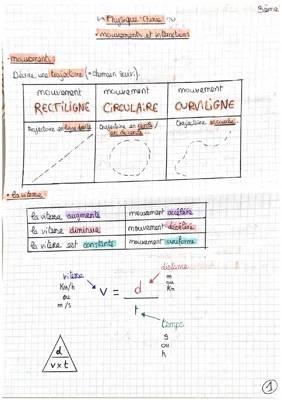 3ème
Physique-Chimie
mouvements et interactions
• mouvement
Décrire une trajectoire (= chemin suivi).
mouvement RECTILIGNE
mouvement CIRCULAIRE
mouvement CURVILIGNE
trajectoire en ligne droite
trajectoire en cercle /
trajectoire en courbe
• la vitesse
la vitesse augmente mouvement accéléré
la vitesse diminue mouvement décéléré
la vitesse est constante mouvement uniforme
vitesse
Km/h
ou
m/s
v = d
t
distance
m
ou
Km
temps
s
ou
h
d
v x t
1